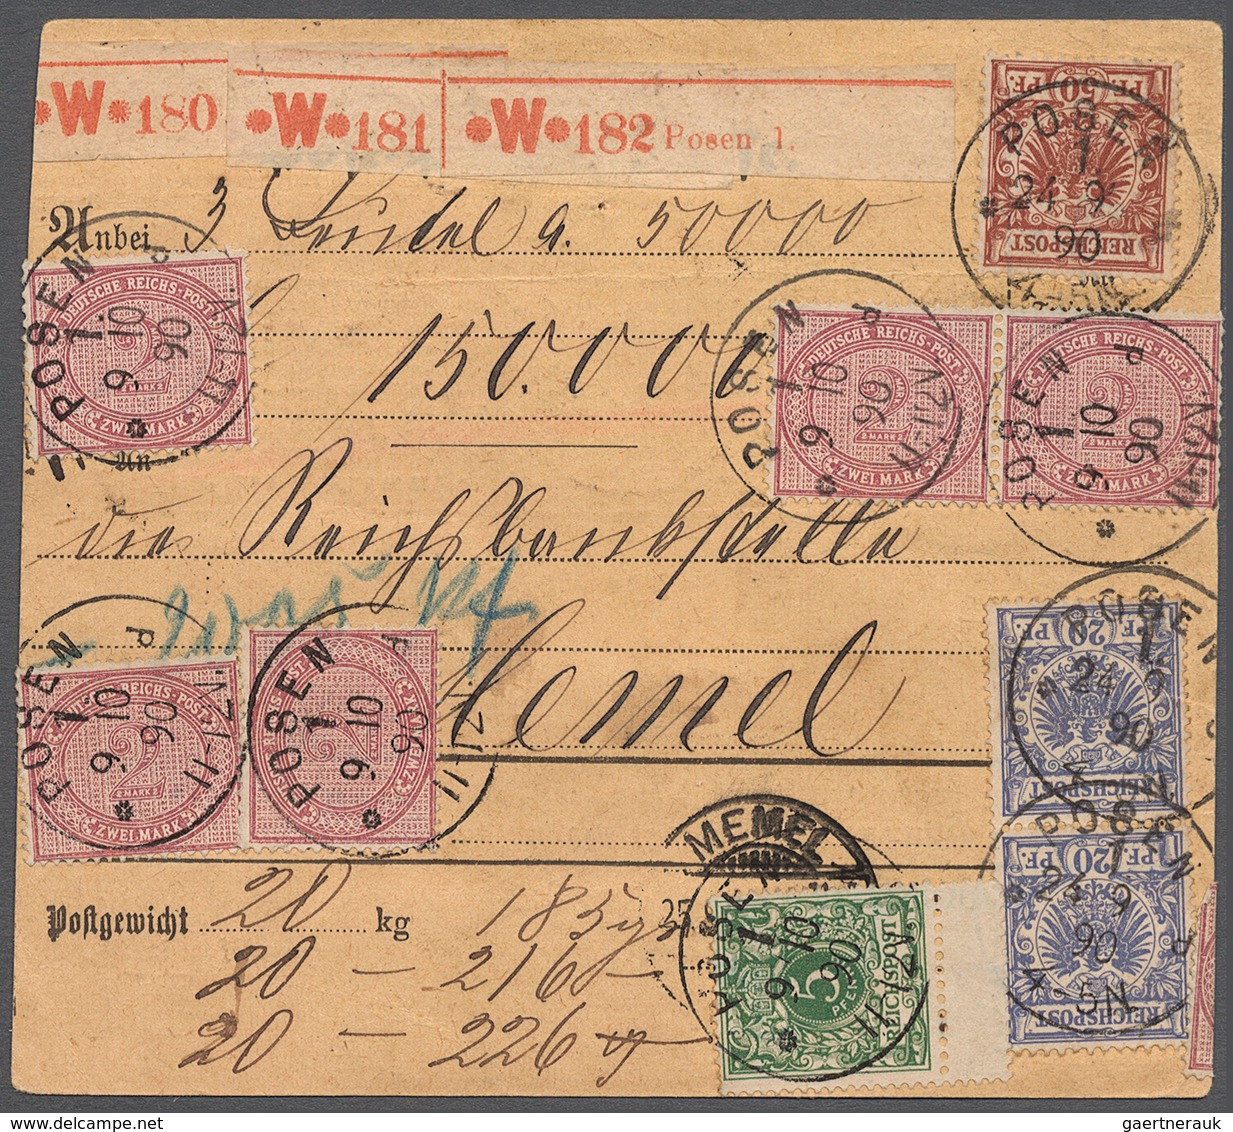 *W*180 *W*181 *W*182 Posen 1.
PF. 50 PF.
REICHSPOST
POSEN 1 24 9 90
Anbei 3 Beutel a. 50000
DEUTSCHE REICHS-POST 2 MARK ZWEI MARK
POSEN 1 9 10 90 11-12V.
150.000
DEUTSCHE REICHS-POST 2 MARK ZWEI MARK
DEUTSCHE REICHS-POST 2 MARK ZWEI MARK
POSEN 1 9 10 90 11-12V
POSEN 1 9 10 90 11-12V
An
die Reichsbankstelle
Memel
POSEN 1 9 10 90 11-12V.
POSEN 1 9 10 90 11-12V
REICHS-POST 2 MARK ZWEI MARK
PF. 20 PF.
REICHSPOST
POSEN 1 24 9 90
PF. 20 PF.
REICHSPOST
POSEN 1 24 9 90 4-5N
MEMEL
Postgewicht 20 kg 185 g
20 — 216 —
20 — 226 g
25
5 PFENNIG REICHSPOST
POSEN 1 9 10 90 11-12V
gaertnerauk